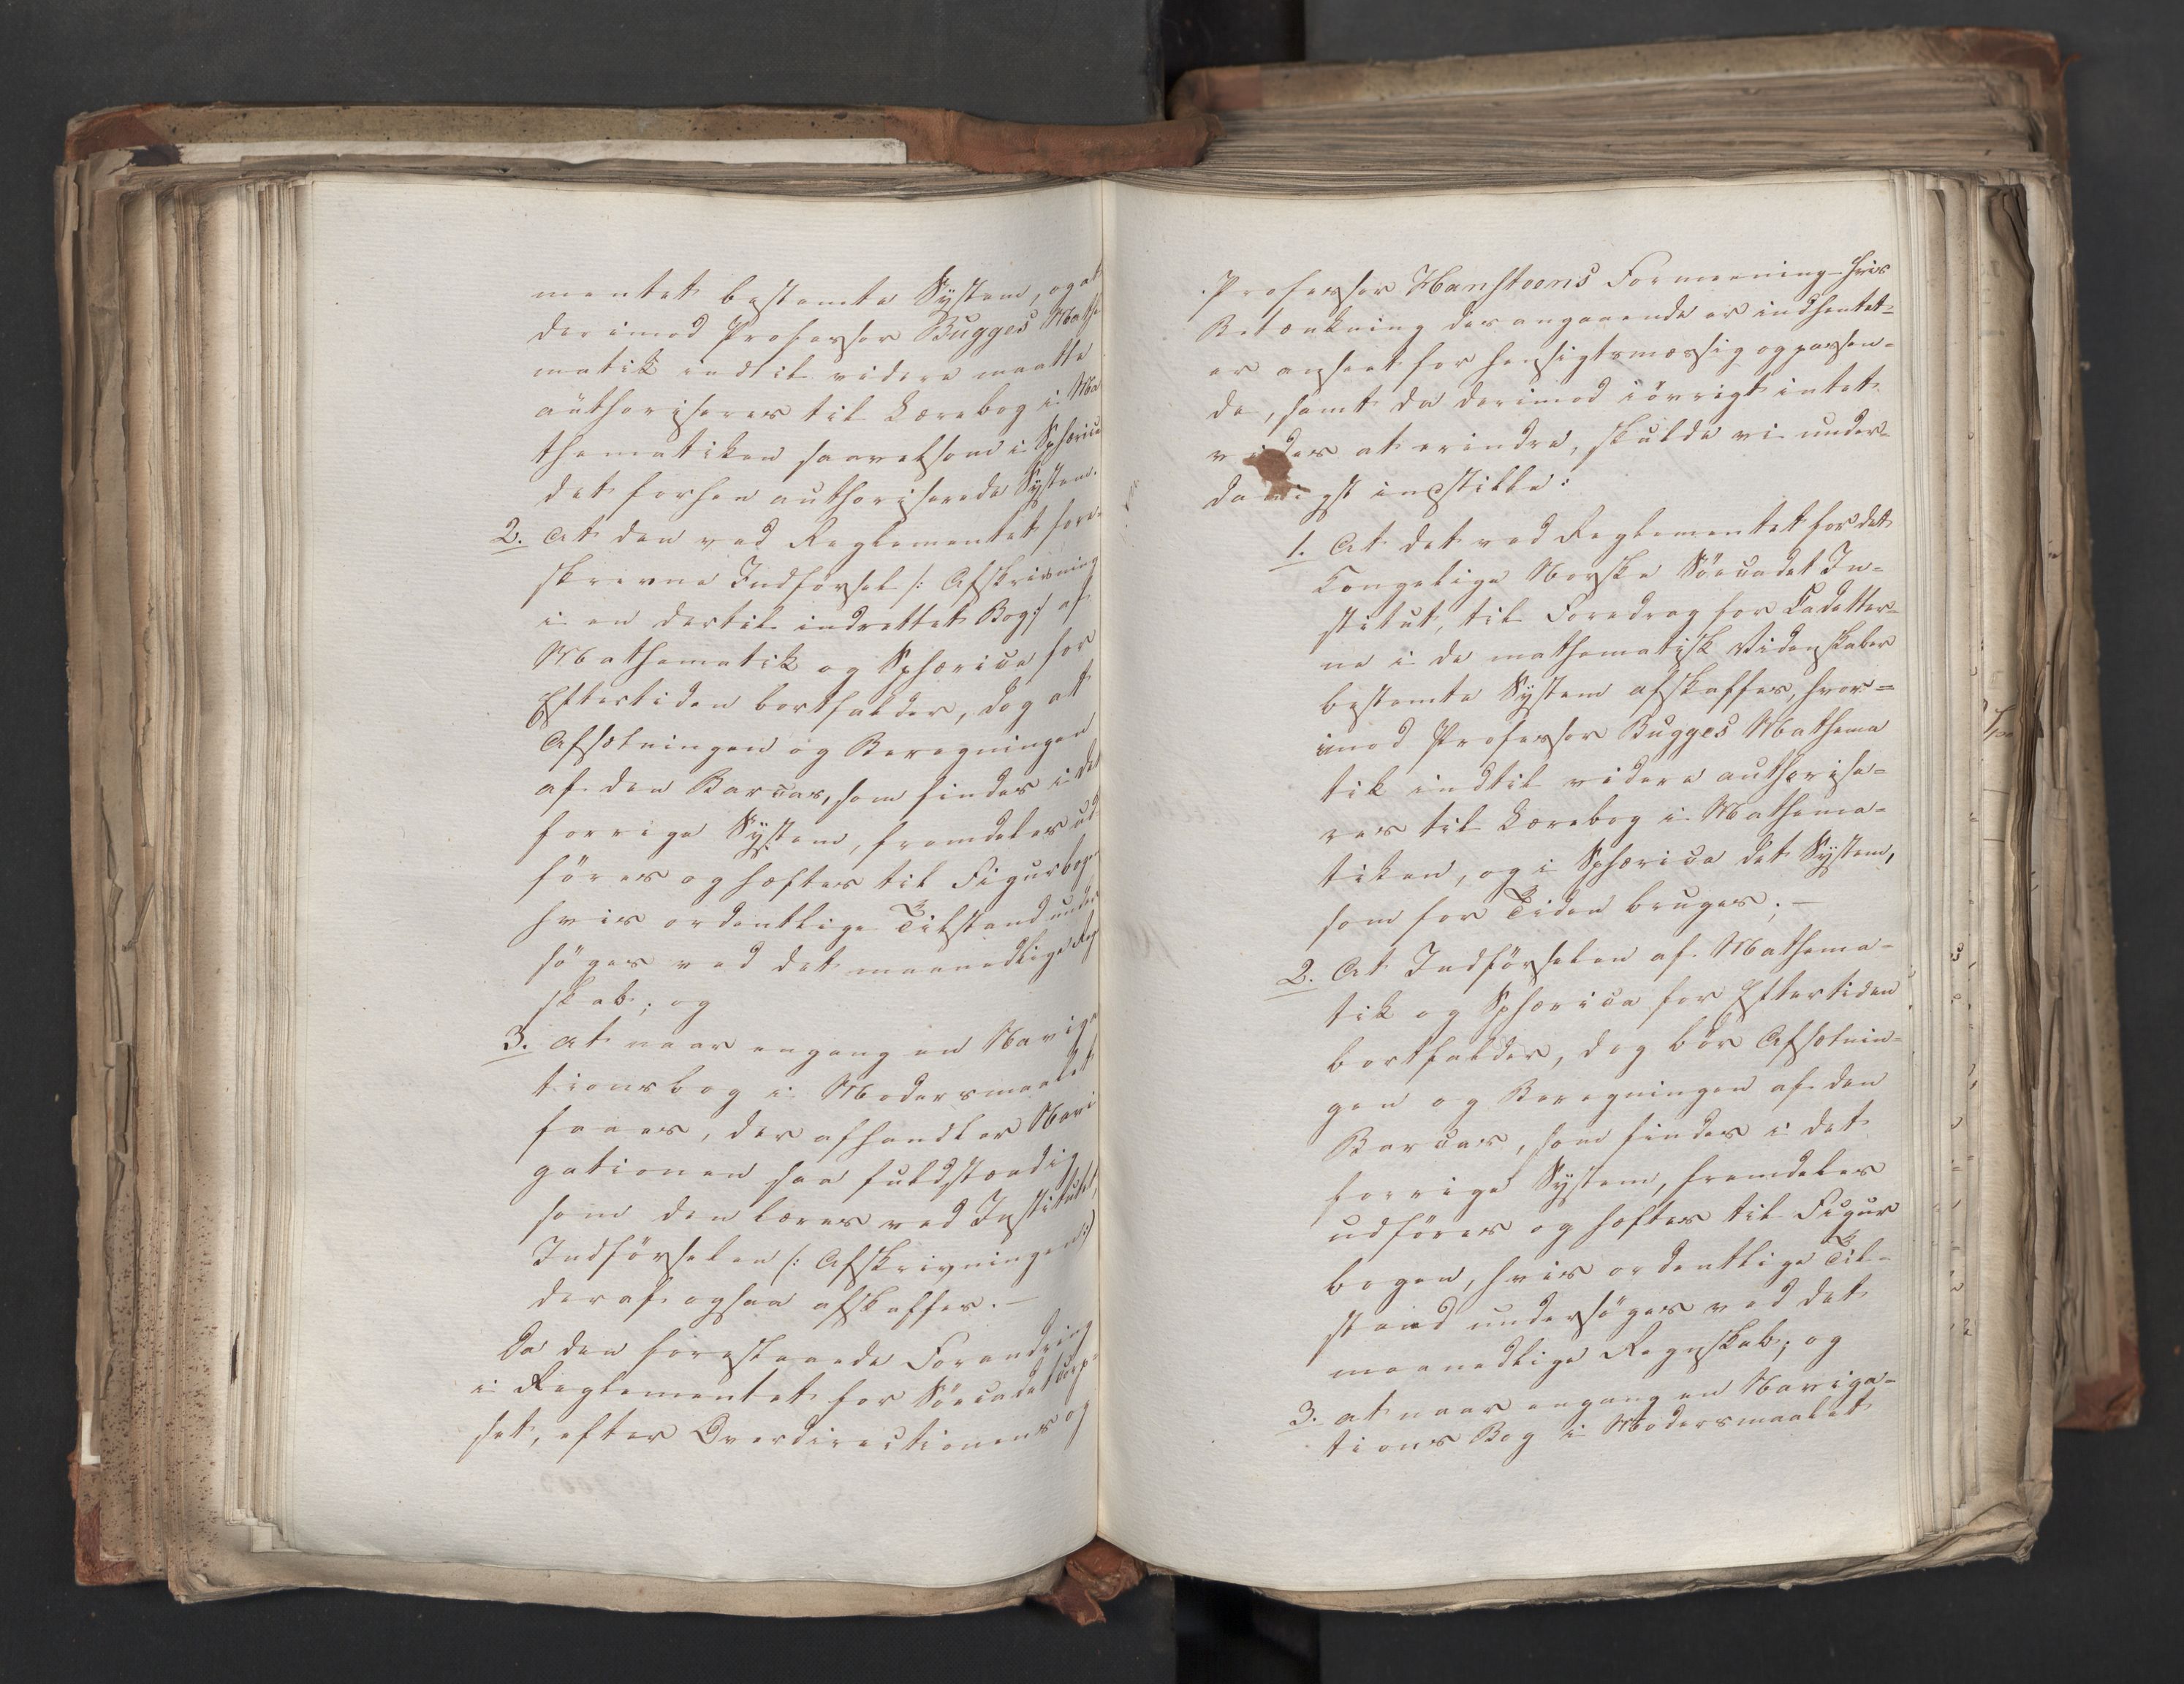 mentet bestemte System, og at
derimod Professor Bugges Mathe
matik indtil videre maatte
authoriseres til Lærebog i Ma
thematiken saavelsom i Sphærica
det forhen authoriserede System.
2. At den ved Reglementet fore-
skrevne Indførsel /: Afskrivning
i en dertil indrettet Bog :/ af
Mathematik og Sphærica for
Eftertiden bortfalder, dog at
Afsætningen og Beregningen
af den Barcas, som findes i det
forrige System, fremdeles ud
föres og hæftes til Figurbogen
hvis ordentlige Tilstand under
söges ved det maanedlige Reg
skab; og
3. at naar engang en Naviga
tionsbog i Modersmaalet
faaes, der afhandler Navi
gationen saa fuldstændig
som den læres ved Institutet,
Indförselen /: Afskrivningen :/
deraf ogsaa afskaffes. —
Da den forestaaende Forandring
i Reglementet for Söecadetcorp-
set, efter Overdirectionens og
Professor Hansteens Formeening - hvis
Betænkning desangaaende er indhentet -
er anseet for hensigtsmæssig og passen-
de, samt da derimod iövrigt intet
vides at erindre, skulde vi under-
danigst indstille:
1. At det ved Reglementet for det
Kongelige Norske Söecadet In-
stitut, til Foredrag for Cadetter-
ne i de mathematisk Videnskaber
bestemte System afskaffes, hvor-
imod Professor Bugges Mathema
tik indtil videre authorise-
res til Lærebog i Mathema-
tiken, og i Sphærica det System,
som for Tiden bruges; —
2. At Indförselen af Mathema-
tik og Sphærica for Eftertiden
bortfalder, dog bör Afsætnin-
gen og Beregningen af den
Barcas, som findes i det
forrige System, fremdeles
udföres og hæftes til Figur
bogen, hvis ordentlige Til-
stand undersöges ved det
maanedlige Regnskab; og
3. at naar engang en Naviga-
tions Bog i Modersmaalet